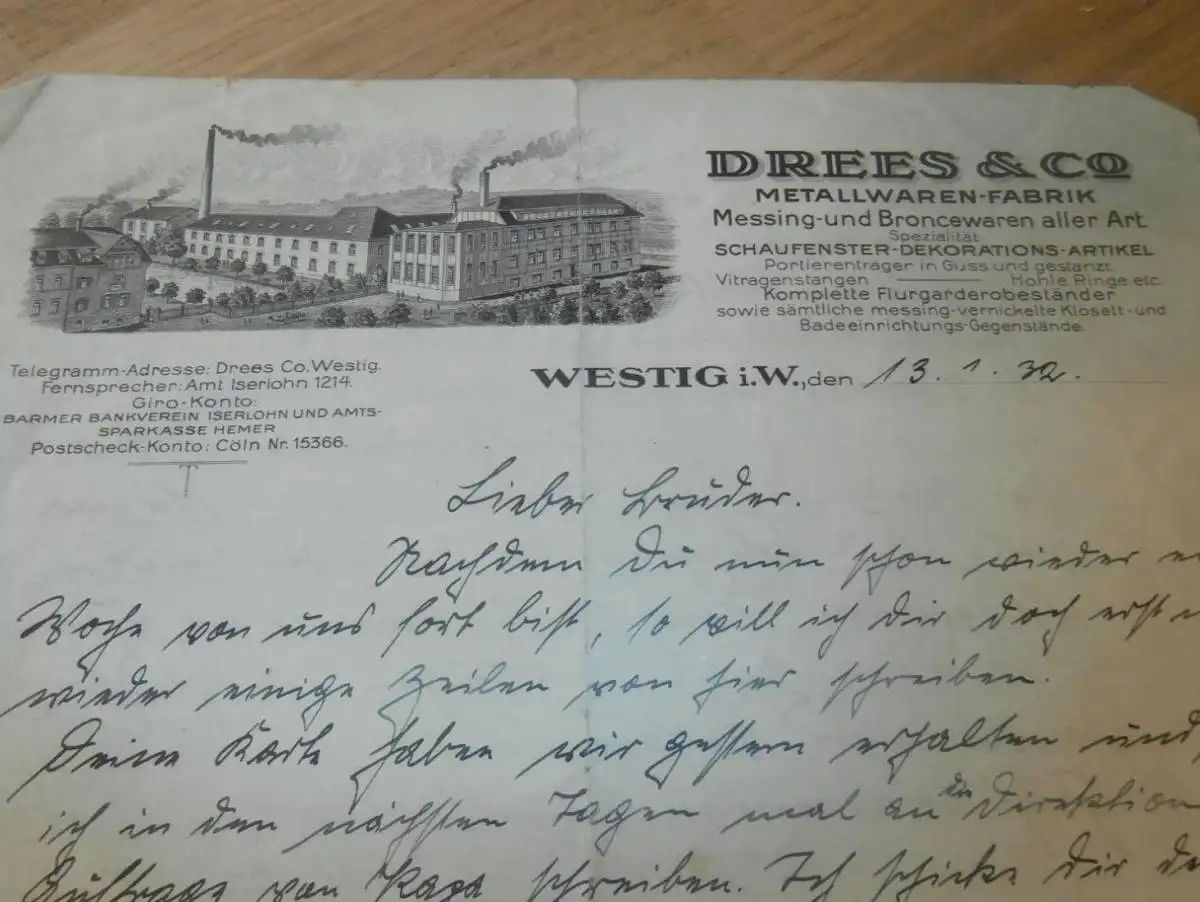 DREES & CO
METALLWAREN-FABRIK
Messing-und Broncewaren aller Art.
Spezialität
SCHAUFENSTER-DEKORATIONS-ARTIKEL
Portierenträger in Guss und gestanzt.
Vitragenstangen Hohle Ringe etc.
Komplette Flurgarderobeständer
sowie sämtliche messing-vernickelte Klosett-und
Badeeinrichtungs-Gegenstände.
Telegramm-Adresse: Drees Co. Westig.
Fernsprecher: Amt Iserlohn 1214.
Giro-Konto:
BARMER BANKVEREIN ISERLOHN UND AMTS-
SPARKASSE HEMER
Postscheck-Konto: Cöln Nr. 15366.
WESTIG i.W., den 13. 1. 32.
Lieber Bruder.
Nachdem Du nun schon wieder
Woche von uns fort bist, so will ich dir doch erst
wieder einige Zeilen von hier schreiben.
Deine Karte haben wir gestern erhalten und
ich in den nächsten Tagen mal an die Direktion
Auftrage von Papa schreiben. Ich schicke Dir